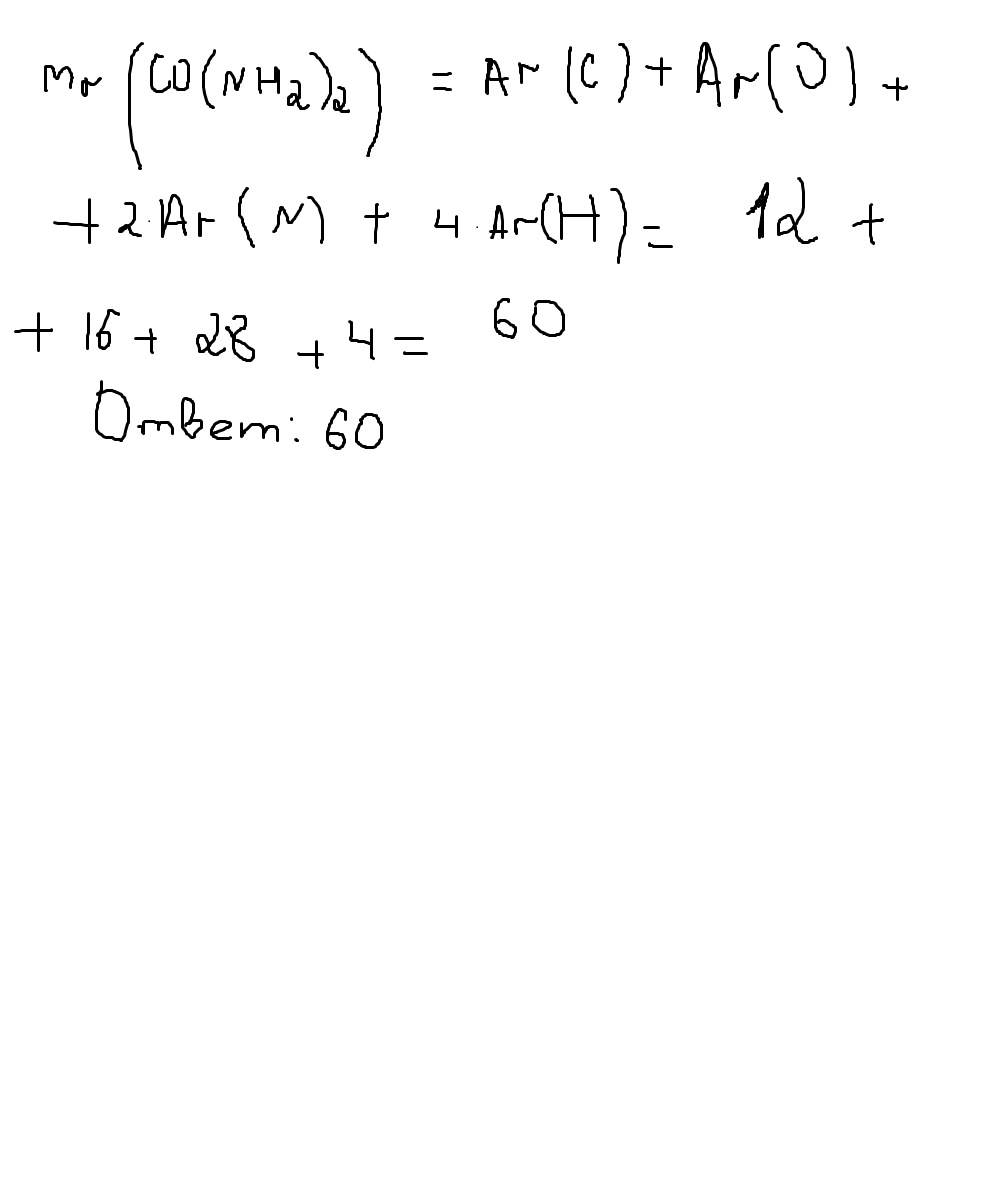 Mr(CO(NH₂)₂) = Ar(C) + Ar(O) +
+ 2·Ar(N) + 4·Ar(H) = 12 +
+ 16 + 28 + 4 = 60
Ответ: 60